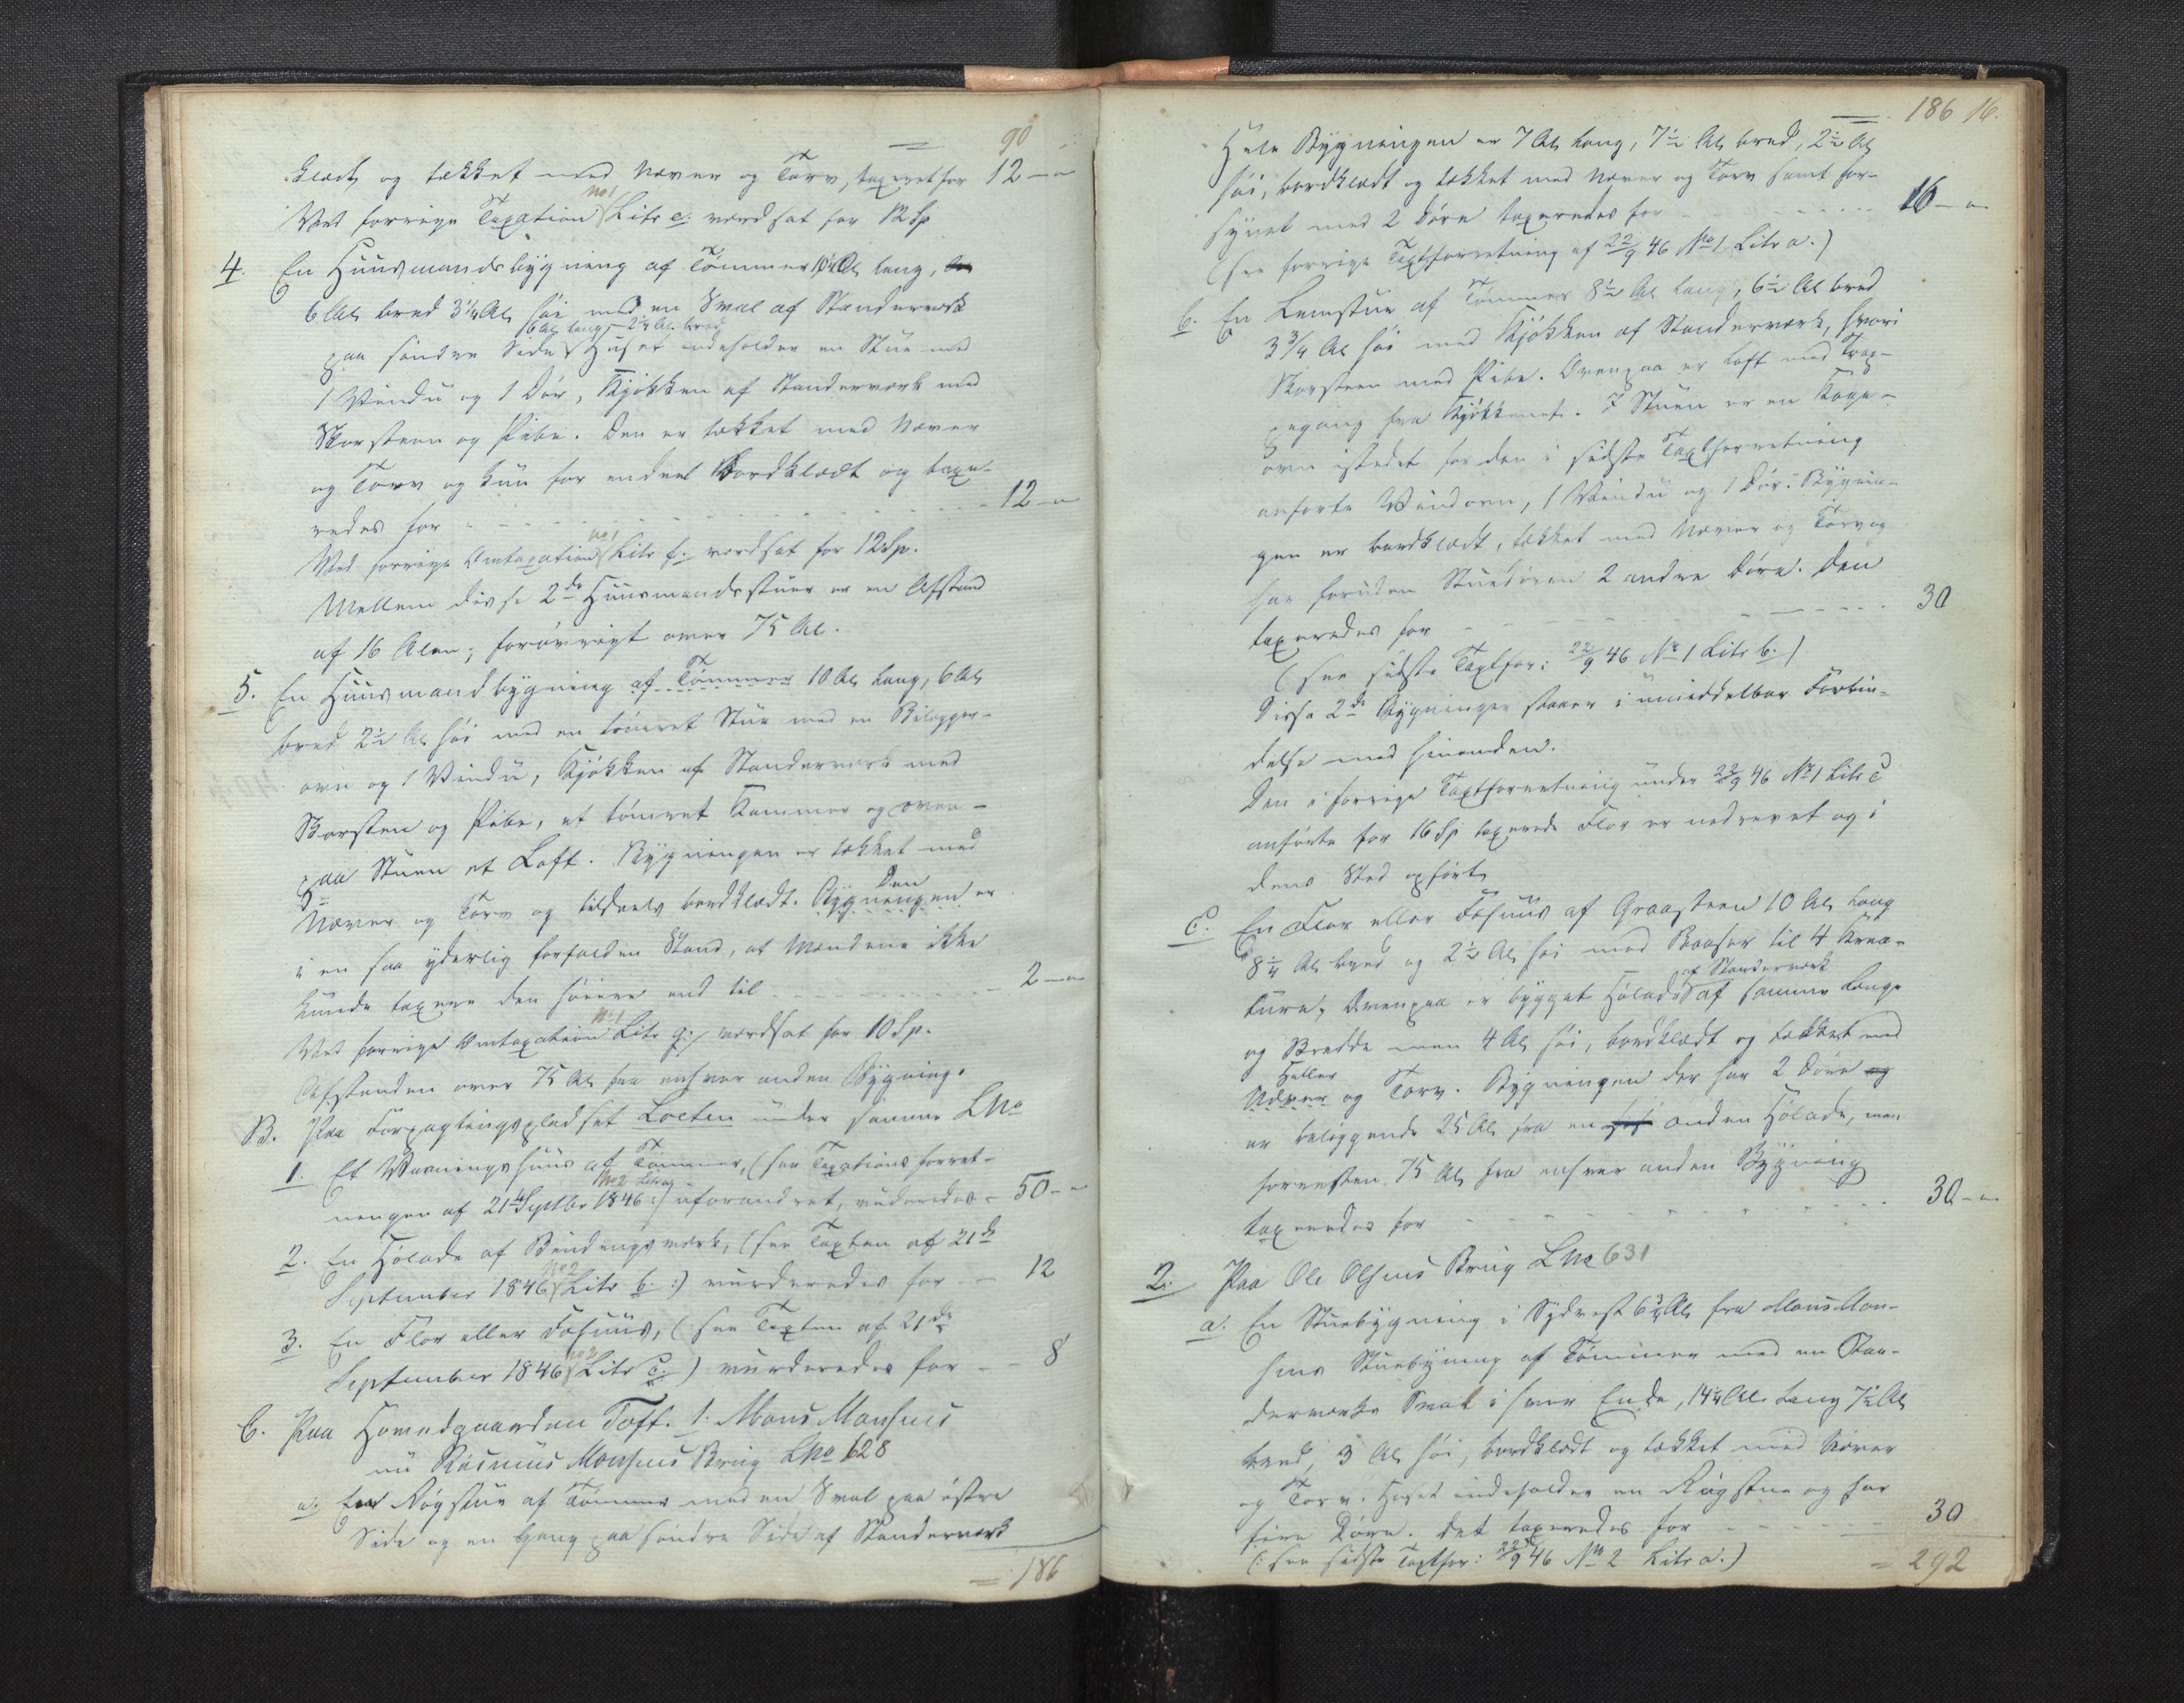 = 90
klædt og tækket med Næver og Torv, taxeret for 12 – "
Ved forrige Taxation No 1 Litr e. værdsat for 12 Sp
4. En Huusmandsbygning af Tømmer 10½ Al lang,
6 Al bred 3¼ Al høi med en Sval af Standerværk
6 Al lang 2¼ Al bred
paa søndre Side Huset indeholder en Stue med
1 Vindu og 1 Dør, Kjøkken af Standerværk med
Skorsteen og Pibe. Den er tækket med Næver
og Torv og kun for endeel bordklædt og taxe-
redes for 12 – "
Ved forrige Omtaxation No 1 Litr f. værdsat for 12 Sp.
Mellem disse 2de Huusmandsstuer er en Afstand
af 16 Alen; forøvrigt over 75 Al.
5. En Huusmandbygning af Tømmer 10 Al lang, 6 Al
bred 2½ Al høi med en tømret Stue med en Bilægger-
ovn og 1 Vindu, Kjøkken af Standerværk med
Skorsten og Pibe, et tømret Kammer og oven-
paa Stuen et Loft. Bygningen er tækket med
Næver og Torv og tildeels bordklædt. Bygningen Den er
i en saa yderlig forfalden Stand, at Mændene ikke
kunde taxere den høiere end til 2 – "
Ved forrige Omtaxation No 1 Litr g. værdsat for 10 Sp.
Afstanden over 75 Al fra enhver anden Bygning.
B. Paa Forpagtingspladset Loeten under samme LNo
1. Et Vaaningshuus af Tømmer, (see Taxations forret-
ningen af 21de Septbr 1846 No 2 Litr a :) uforandret, vurderedes 50 – "
2. En Høelade af Bindingsværk, (see Taxten af 21de
September 1846 No 2 Litr b. :) vurderedes for 12
3. En Flor eller Fæhuus, (see Taxten af 21de
September 1846 No 2 Litr c. ) vurderedes for 8
C. Paa Hovedgaarden Toft. 1. Mons Monsens
nu Rasmus Monsens Brug LNo 628
a. En Røgstue af Tømmer med en Sval paa østre
Side og en Gang paa søndre Side af Standerværk
= 186
= 186 16.
Hele Bygningen er 7 Al lang, 7½ Al bred, 2½ Al
høi, bordklædt og tækket med Næver og Torv samt for-
synet med 2 Døre taxeredes for 16 – "
(see forrige Taxtforretning af 22/9 46 No 1 Litr a.)
b. En Lemstue af Tømmer 8½ Al lang, 6½ Al bred
3¾ Al høi med Kjøkken af Standerværk, hvori
Skorsteen med Pibe. Ovenpaa er Loft med Trap-
pegang fra Kjøkkenet. I Stuen er en Koge-
ovn istedet for den i sidste Taxtforretning
anførte Vindovn, 1 Vindu og 1 Dør. Bygnin-
gen er bordklædt, tækket med Næver og Torv og
har foruden Stuedøren 2 andre Døre. Den
taxeredes for 30
(see sidste Taxtfor: 22/9 46 No 1 Litr b.)
Disse 2de Bygninger staaer i umiddelbar Forbin-
delse med hinanden.
Den i forrige Taxtforretning under 22/9 46 No 1 Litr c
anførte for 16 Sp taxerede Flor er nedrevet og i
dens Sted opført
c. En Flor eller Fæhuus af Graasteen 10 Al lang
8¼ Al bred og 2½ Al høi med Baaser til 4 Krea-
turer, Ovenpaa er bygget Hølade af Standerværk af samme Længe
og Bredde men 4 Al høi, bordklædt og tækket med
Næver Heller og Torv. Bygningen der har 2 Døre og
er beliggende 25 Al fra en anden Hølade, men
forresten 75 Al fra enhver anden Bygning
taxeredes for 30 – "
2. Paa Ole Olsens Brug LNo 631
a. En Stuebygning i Sydvest 6¾ Al fra Mons Mon-
sens Stuebyning af Tømmer med en Stan-
derværks Sval i hver Ende, 14¼ Al. lang 7½ Al
bred, 3 Al høi, bordklædt og tækket med Næver
og Torv. Huset indeholder en Røgstue og har
fire Døre. Det taxeredes for 30
(: see sidste Taxtfor: 22/9 46 No 2 Litr a.)
= 292